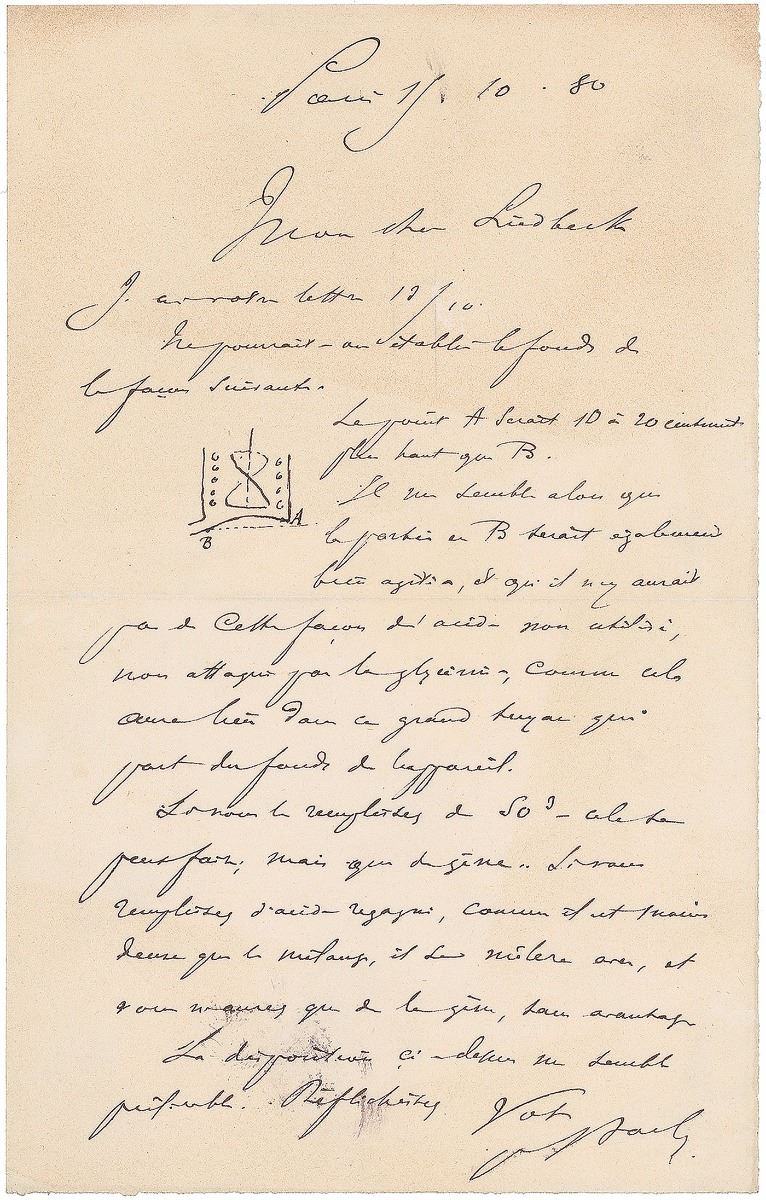 Paris 15. 10. 80
Mon cher Liedbeck
J'ai votre lettre 13/10.
Ne pourrait-on établir le fonds de
la façon suivante.
Le point A serait 10 à 20 centimet
plus haut que B.
A
B
Il me semble alors que
la partie en B serait également
bien agitée, et qu'il n'y aurait
pas de cette façon d'acide non utilisé,
non attaqué par la glycérine, comme cela
aura lieu dans ce grand tuyau qui
part du fonds de l'appareil.
Si vous le remplissez de SO³ - cela se
peut faire; mais que de gêne.. Si vous
remplissez d'acide regagné, comme il est moins
dense que le mélange, il se mêlera avec, et
vous n'aurez que de la gêne, sans avantage
La disposition ci-dessus me semble
préférable. Réfléchissez
Votre